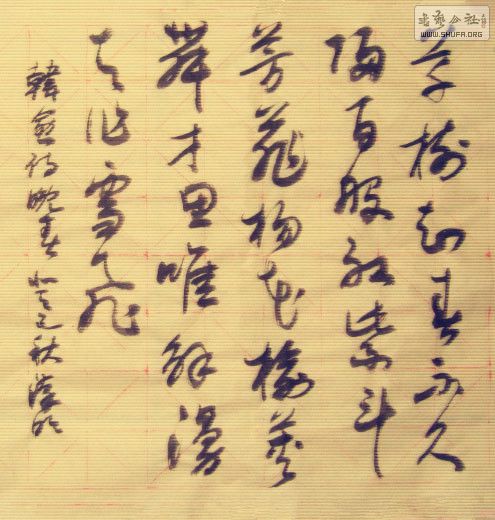 書藝公社
WWW.SHUFA.ORG
草樹知春不久
歸百般紅紫斗
芳菲楊花榆莢
舞才思唯解漫
天作雪飛
韓愈詩晚春 癸巳秋